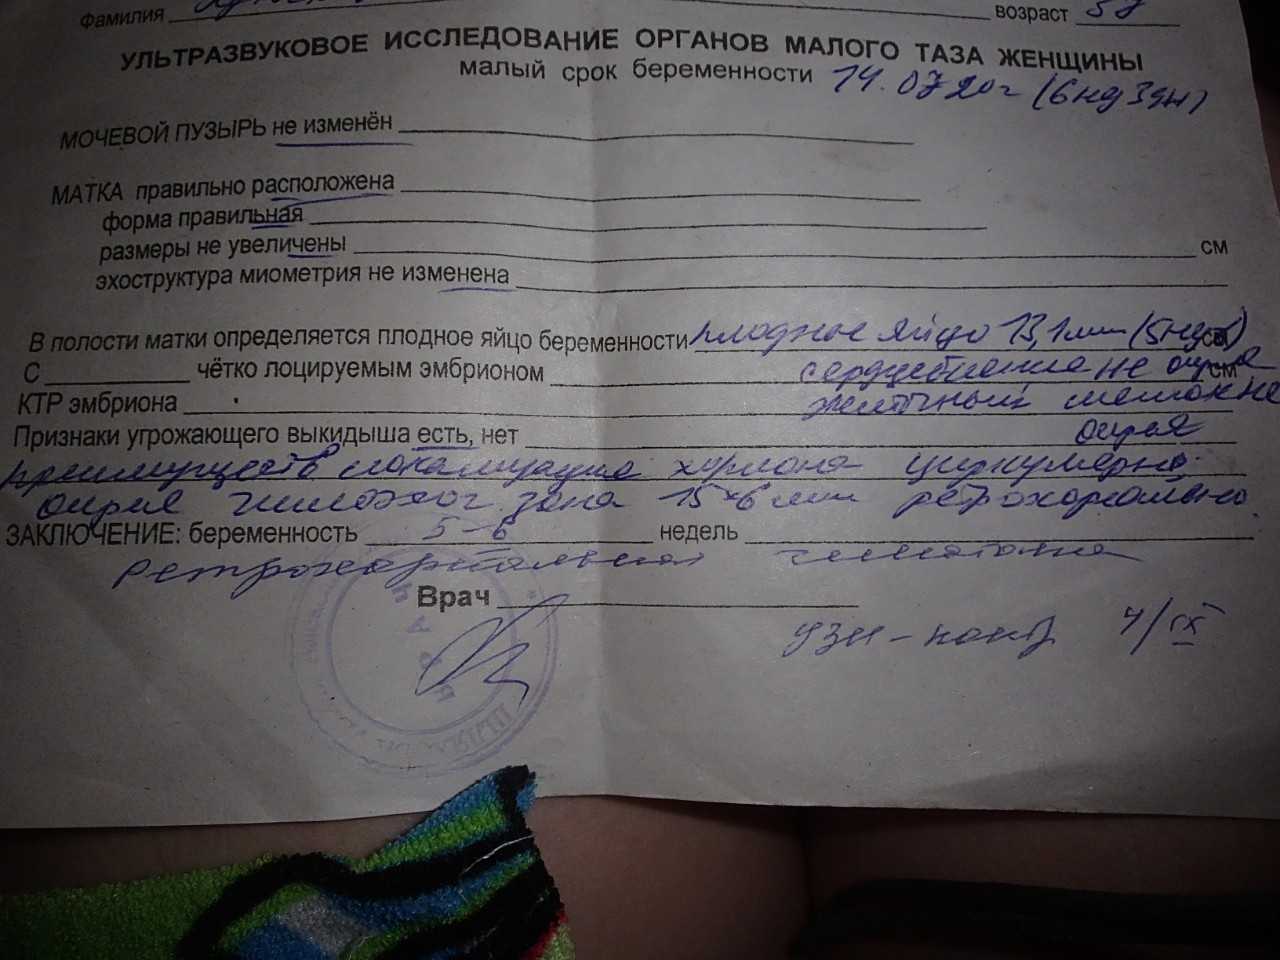 Фамилия возраст
УЛЬТРАЗВУКОВОЕ ИССЛЕДОВАНИЕ ОРГАНОВ МАЛОГО ТАЗА ЖЕНЩИНЫ
малый срок беременности 14.07.20г (6нд 3дн)
МОЧЕВОЙ ПУЗЫРЬ не изменён
МАТКА правильно расположена
форма правильная
размеры не увеличены см
эхоструктура миометрия не изменена
В полости матки определяется плодное яйцо беременности плодное яйцо 13,1мм (5нд)
С чётко лоцируемым эмбрионом сердцебиение не опред см
КТР эмбриона желточный мешок не
Признаки угрожающего выкидыша есть, нет опред
преимуществ локализация хориона циркулярно
опред гипоэхог. зона 15×6 мм ретрохориально.
ЗАКЛЮЧЕНИЕ: беременность 5-6 недель
ретрохориальная гематома
Врач
УЗИ - контр 4/IX